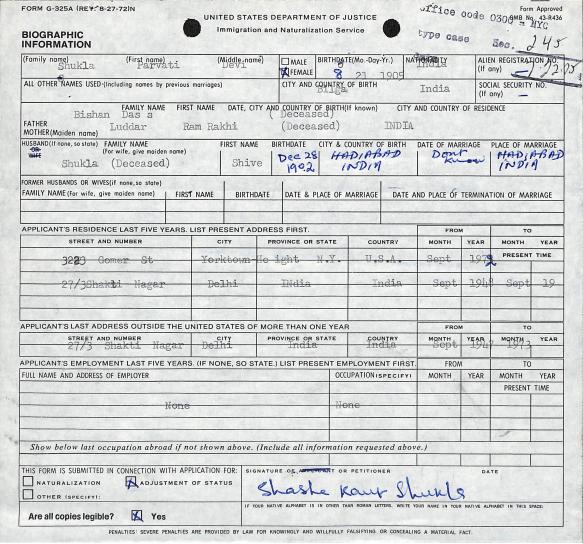 FORM G-325A (REV. 8-27-72)N
UNITED STATES DEPARTMENT OF JUSTICE
Immigration and Naturalization Service
Form Approved
OMB No. 43-R436
office code 0300 - NYC
type case Sec. 245
BIOGRAPHIC INFORMATION
(Family name) (First name) (Middle name) MALE FEMALE BIRTHDATE (Mo.-Day-Yr.) NATIONALITY ALIEN REGISTRATION NO. (If any)
Shukla Parvati Devi 8 21 1905 India
ALL OTHER NAMES USED (Including names by previous marriages) CITY AND COUNTRY OF BIRTH SOCIAL SECURITY NO. (If any)
Bilga India –
FAMILY NAME FIRST NAME DATE, CITY AND COUNTRY OF BIRTH (If known) CITY AND COUNTRY OF RESIDENCE
FATHER Bishan Das s (Deceased)
MOTHER (Maiden name) Luddar Ram Rakhi (Deceased) INDIA
HUSBAND (If none, so state) OR WIFE FAMILY NAME (For wife, give maiden name) FIRST NAME BIRTHDATE CITY & COUNTRY OF BIRTH DATE OF MARRIAGE PLACE OF MARRIAGE
Shukla (Deceased) Shive Dec 28 1902 HADIABAD INDIA Dont know HADIABAD INDIA
FORMER HUSBANDS OR WIVES (if none, so state)
FAMILY NAME (For wife, give maiden name) FIRST NAME BIRTHDATE DATE & PLACE OF MARRIAGE DATE AND PLACE OF TERMINATION OF MARRIAGE
APPLICANT'S RESIDENCE LAST FIVE YEARS. LIST PRESENT ADDRESS FIRST. FROM TO
STREET AND NUMBER CITY PROVINCE OR STATE COUNTRY MONTH YEAR MONTH YEAR
PRESENT TIME
3223 Gomer St Yorktown Height N.Y. U.S.A. Sept
27/3Shakti Nagar Delhi INdia India Sept 1948 Sept 19
APPLICANT'S LAST ADDRESS OUTSIDE THE UNITED STATES OF MORE THAN ONE YEAR FROM TO
STREET AND NUMBER CITY PROVINCE OR STATE COUNTRY MONTH YEAR MONTH YEAR
27/3 Shakti Nagar Delhi India India Sept 1973
APPLICANT'S EMPLOYMENT LAST FIVE YEARS. (IF NONE, SO STATE.) LIST PRESENT EMPLOYMENT FIRST. FROM TO
FULL NAME AND ADDRESS OF EMPLOYER OCCUPATION (SPECIFY) MONTH YEAR MONTH YEAR
PRESENT TIME
None None
Show below last occupation abroad if not shown above. (Include all information requested above.)
THIS FORM IS SUBMITTED IN CONNECTION WITH APPLICATION FOR: SIGNATURE OF APPLICANT OR PETITIONER DATE
NATURALIZATION ADJUSTMENT OF STATUS
OTHER (SPECIFY):
Shashe Kant Shukla
IF YOUR NATIVE ALPHABET IS IN OTHER THAN ROMAN LETTERS, WRITE YOUR NAME IN YOUR NATIVE ALPHABET IN THIS SPACE:
Are all copies legible? Yes
PENALTIES: SEVERE PENALTIES ARE PROVIDED BY LAW FOR KNOWINGLY AND WILLFULLY FALSIFYING OR CONCEALING A MATERIAL FACT.